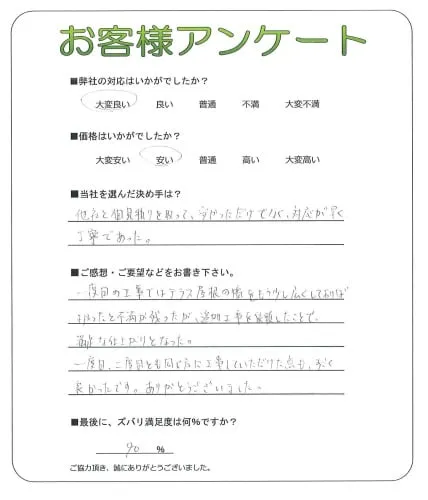 お客様アンケート
■弊社の対応はいかがでしたか？
大変良い 良い 普通 不満 大変不満
■価格はいかがでしたか？
大変安い 安い 普通 高い 大変高い
■当社を選んだ決め手は？
他社と相見積りを取って、安かっただけでなく、対応が早く
丁寧であった。
■ご感想・ご要望などをお書き下さい。
一度目の工事ではテラス屋根の幅をもう少し広くしておけば
よかったと不満が残ったが、追加工事を依頼したことで、
な仕上がりとなった。
一度目、二度目とも同じ方に工事していただけた点も、
良かったです。ありがとうございました。
■最後に、ズバリ満足度は何％ですか？
90 ％
ご協力頂き、誠にありがとうございました。